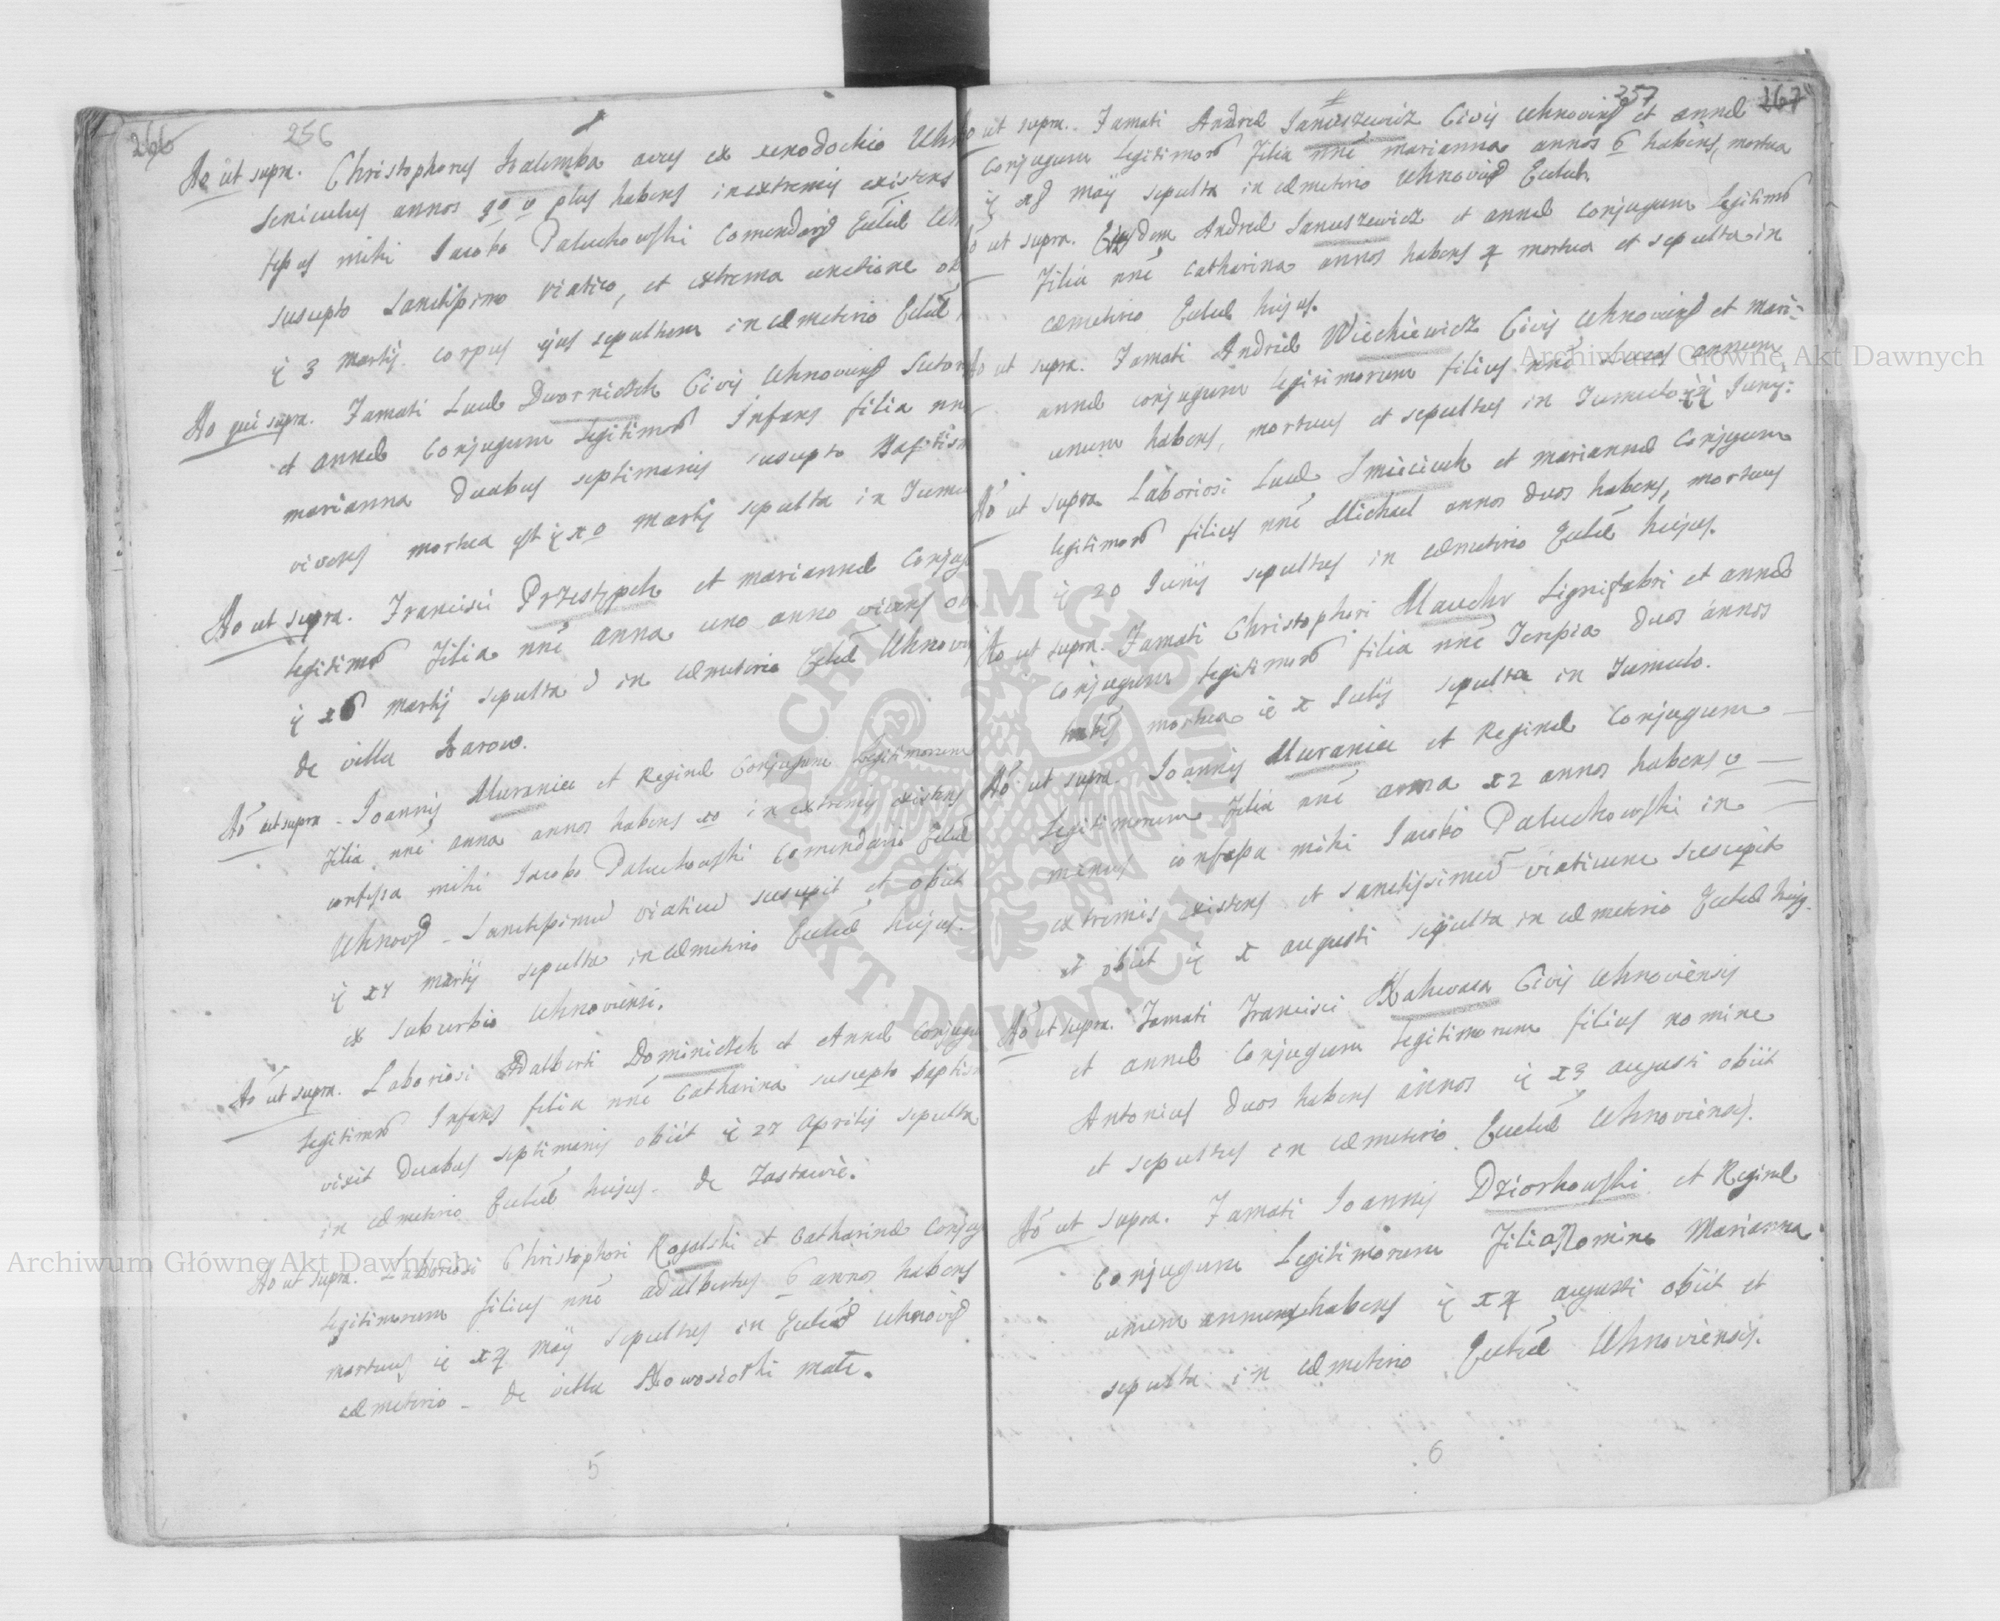 266 256
Ao ut supra. Christophorus Halemba avus ex xenodochio Uhn
seniculus annos 90 v plus habens in extremis existens
fessus mihi Jacobo Paluchowski Comendario Eccl Uh
suscepto Sanctissimo viatico, et extrema unctione ob
3 Martij corpus ejus sepultum in cæmeterio Eccl
Ao qui supra. Famati Lucæ Dwornicžek Civis Uhnoviens Sutor
et Annæ Conjugum Legitimor Infans filia nn
Marianna duabus septimanis suscepto Baptism
vivens mortua est x0 Martij sepulta in Tumu
Ao ut supra. Francisci Przestrzpek et Mariannæ Conjug
Legitimor Filia nne Anna uno anno vivens ob
x6 Martij sepulta in cæmeterio Eccl Uhnovi
de villa Karow.
Ao ut supra. Joannis Muraniec et Reginæ Conjugum Legitimorum
Filia nne Anna annos habens xo in extremis existens
confessa mihi Jacobo Paluchowski Comendario Eccl
Uhnov. Sanctissimu viaticu suscepit et obiit
x7 Martij sepulta in cæmeterio Eccl hujus.
ex suburbio Uhnoviensi.
Ao ut supra. Laboriosi Adalberti Dominicžek et Annæ Conjugu
Legitimor Infans filia nne Catharina suscepto baptism
vixit duabus septimanis obiit 27 Aprilis sepulta
in cæmeterio Eccl hujus. de Zastawie.
Ao ut supra. Laboriosi Christophori Rogalski et Catharinæ Conjug
Legitimorum filius nne Adalbertus 6 annos habens
mortuus x4 Maij sepultus in Eccl Uhnovis
cæmeterio. de villa Nowosiołki małe.
5
257 267
ut supra. Famati Andreæ Januszewicz Civis Uhnoviens et Annæ
Conjugum Legitimor Filia nne Marianna annos 6 habens, mortua
x8 Maij sepulta in cæmeterio Uhnovis Eccl.
ut supra. Ejusdem Andreæ Januszewicz et Annæ Conjugum Legitimor
Filia nne Catharina annos habens 4 mortua et sepulta in
cæmeterio Eccl hujus.
Ao ut supra. Famati Andreæ Wiechiewicz Civis Uhnoviens et Mari-
annæ conjugum legitimorum filius nne Lucas annum
unum habens, mortuus et sepultus in Tumulo Junij.
Ao ut supra Laboriosi Lucæ Smieciuch et Mariannæ Conjugum
legitimor filius nne Michael annos duos habens, mortuus
20 Junij sepultus in cæmeterio Eccl hujus.
Ao ut supra. Famati Christophori Mauchr Lignifabri et Annæ
Conjugum legitimor filia nne Teresia duos annos
habens mortua x Julij sepulta in Tumulo.
Ao ut supra. Joannis Muraniec et Reginæ Conjugum
Legitimorum Filia nne Anna x2 annos habens v
minus confessa mihi Jacobo Paluchowski in
extremis existens et Sanctissimu viaticum suscepit
et obiit x Augusti sepulta in cæmeterio Eccl hujus.
Ao ut supra. Famati Francisci Kahwara Civis Uhnoviensis
et Annæ Conjugum Legitimorum filius nomine
Antonius duos habens annos x3 Augusti obiit
et sepultus in cæmeterio Eccl Uhnoviensis.
Ao ut supra. Famati Joannis Dziorkowski et Reginæ
Conjugum Legitimorum Filia Nomine Marianna
unum annum habens x4 Augusti obiit et
sepulta in cæmeterio Eccl Uhnoviensis.
6
Archiwum Główne Akt Dawnych
Archiwum Główne Akt Dawnych
ARCHIWUM GŁÓWNE AKT DAWNYCH